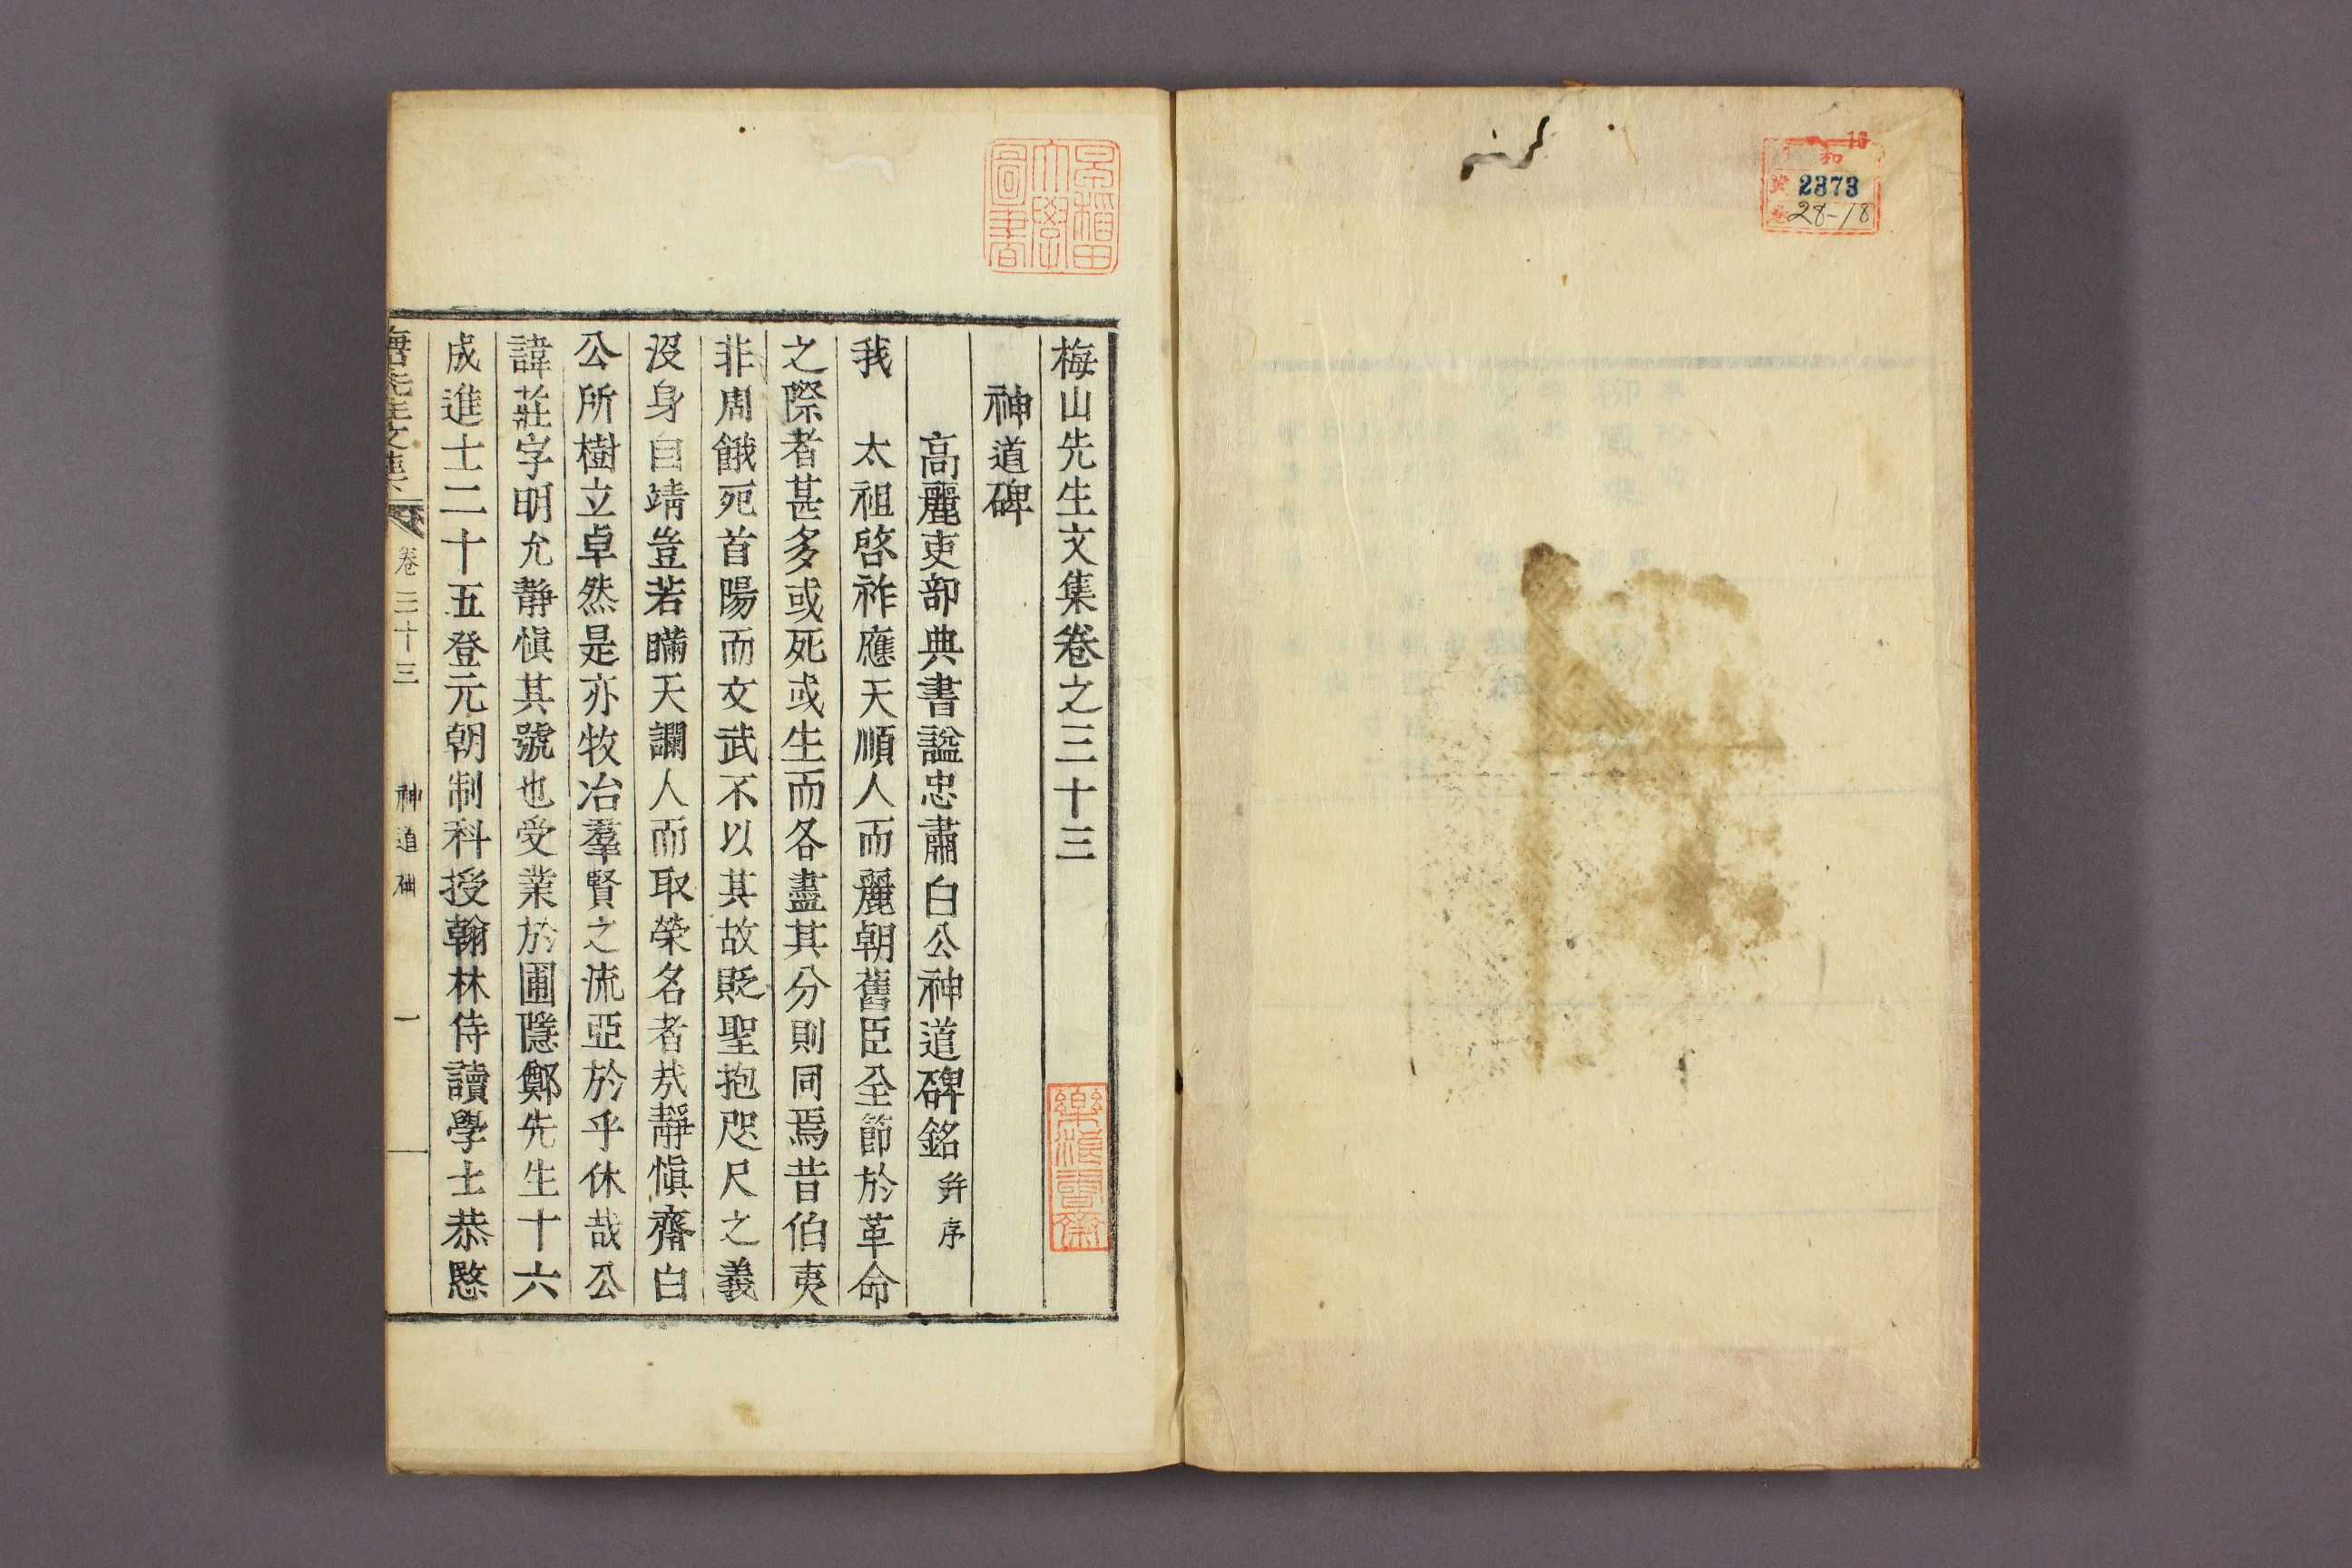 和
18
2373
28-18
早稲田大學圖書
梅山先生文集卷之三十三
神道碑
高麗吏部典書謚忠肅白公神道碑銘 幷序
我 太祖啓祚應天順人而麗朝舊臣全節於革命
之際者甚多或死或生而各盡其分則同焉昔伯夷
非周餓死首陽而文武不以其故貶聖抱咫尺之義
沒身自靖豈若瞞天讕人而取榮名者㢤靜愼齋白
公所樹立卓然是亦牧冶羣賢之流亞於乎休哉公
諱莊字明允靜愼其號也受業於圃隱鄭先生十六
成進士二十五登元朝制科授翰林侍讀學士恭愍
梅山先生文集
卷三十三
神道碑
一